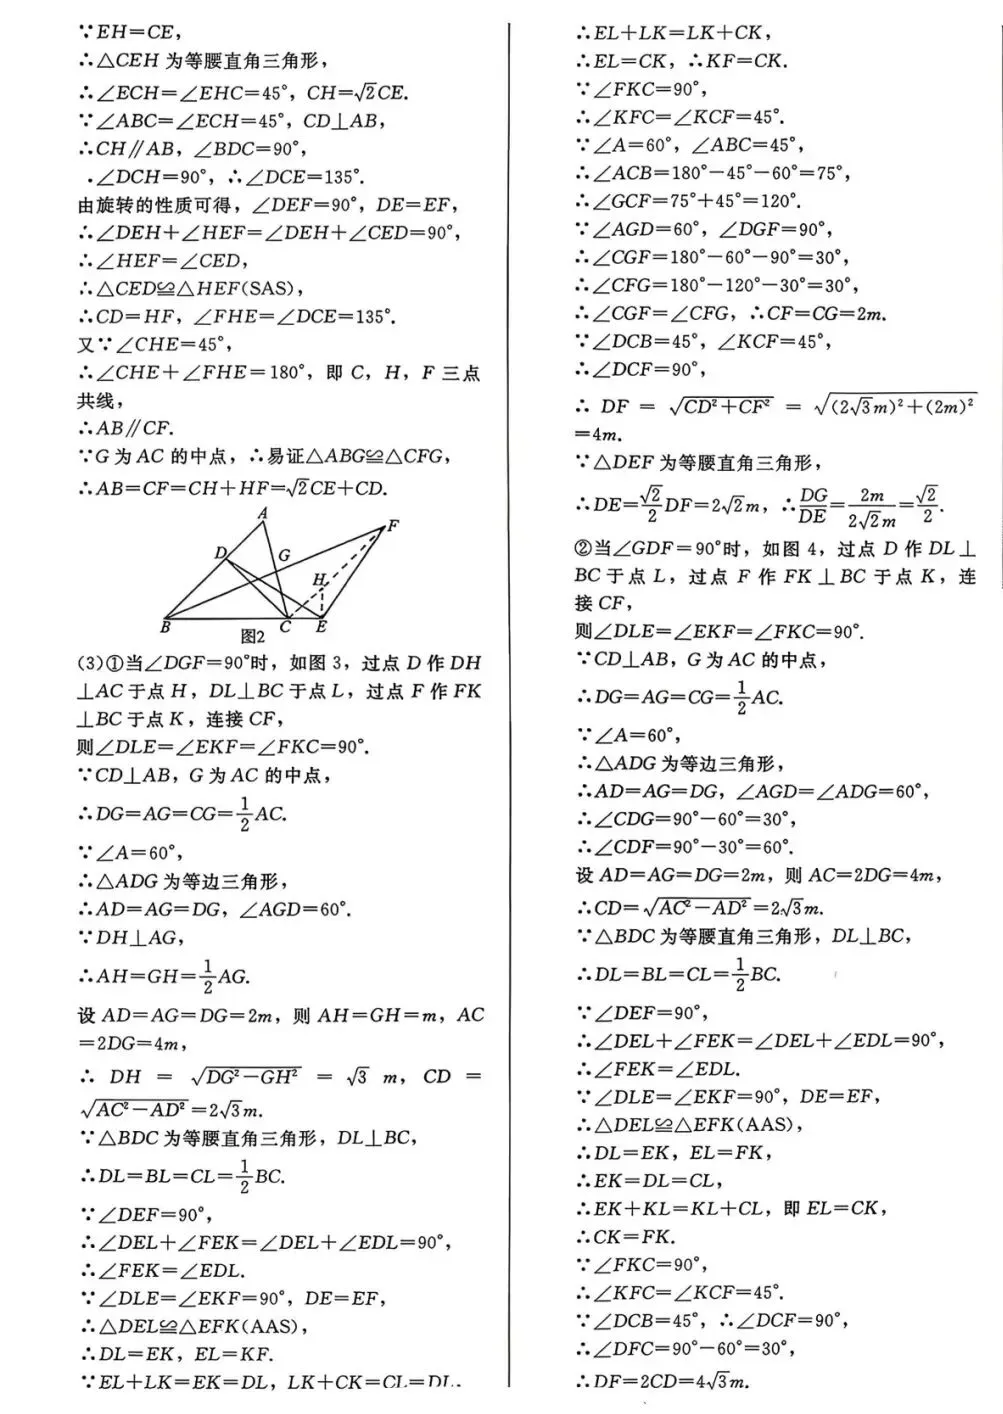 ∵EH=CE,
∴△CEH 为等腰直角三角形,
∴∠ECH=∠EHC=45°, CH=√2CE.
∵∠ABC=∠ECH=45°, CD⊥AB,
∴CH∥AB, ∠BDC=90°,
.∠DCH=90°, ∴∠DCE=135°.
由旋转的性质可得, ∠DEF=90°, DE=EF,
∴∠DEH+∠HEF=∠DEH+∠CED=90°,
∴∠HEF=∠CED,
∴△CED≌△HEF(SAS),
∴CD=HF, ∠FHE=∠DCE=135°.
又∵∠CHE=45°,
∴∠CHE+∠FHE=180°, 即 C, H, F 三点
共线,
∴AB∥CF.
∵G为AC 的中点, ∴易证△ABG≌△CFG,
∴AB=CF=CH+HF=√2CE+CD.
A
F
D
G
H
B
C
E
图2
(3)①当∠DGF=90°时, 如图 3, 过点 D 作 DH
⊥AC于点 H, DL⊥BC于点 L, 过点 F 作 FK
⊥BC于点 K, 连接 CF,
则∠DLE=∠EKF=∠FKC=90°.
∵CD⊥AB, G为AC 的中点,
∴DG=AG=CG=1/2AC.
∵∠A=60°,
∴△ADG为等边三角形,
∴AD=AG=DG, ∠AGD=60°.
∵DH⊥AG,
∴AH=GH=1/2AG.
设 AD=AG=DG=2m, 则 AH=GH=m, AC
=2DG=4m,
∴ DH = √(DG²-GH²) = √3 m, CD =
√(AC²-AD²)=2√3m.
∵△BDC为等腰直角三角形, DL⊥BC,
∴DL=BL=CL=1/2BC.
∵∠DEF=90°,
∴∠DEL+∠FEK=∠DEL+∠EDL=90°,
∴∠FEK=∠EDL.
∵∠DLE=∠EKF=90°, DE=EF,
∴△DEL≌△EFK(AAS),
∴DL=EK, EL=KF.
∵EL+LK=EK=DL, LK+CK=CL=DL,
∴EL+LK=LK+CK,
∴EL=CK, ∴KF=CK.
∵∠FKC=90°,
∴∠KFC=∠KCF=45°.
∵∠A=60°, ∠ABC=45°,
∴∠ACB=180°-45°-60°=75°,
∴∠GCF=75°+45°=120°.
∵∠AGD=60°, ∠DGF=90°,
∴∠CGF=180°-60°-90°=30°,
∴∠CFG=180°-120°-30°=30°,
∴∠CGF=∠CFG, ∴CF=CG=2m.
∵∠DCB=45°, ∠KCF=45°,
∴∠DCF=90°,
∴ DF = √(CD²+CF²) = √((2√3m)²+(2m)²)
=4m.
∵△DEF为等腰直角三角形,
∴DE=√2/2DF=2√2m, ∴DG/DE=2m/2√2m=√2/2.
②当∠GDF=90°时, 如图 4, 过点 D 作 DL⊥
BC于点 L, 过点 F 作 FK⊥BC于点 K, 连
接 CF,
则∠DLE=∠EKF=∠FKC=90°.
∵CD⊥AB, G为AC 的中点,
∴DG=AG=CG=1/2AC.
∵∠A=60°,
∴△ADG为等边三角形,
∴AD=AG=DG, ∠AGD=∠ADG=60°,
∴∠CDG=90°-60°=30°,
∴∠CDF=90°-30°=60°.
设 AD=AG=DG=2m, 则 AC=2DG=4m,
∴CD=√(AC²-AD²)=2√3m.
∵△BDC为等腰直角三角形, DL⊥BC,
∴DL=BL=CL=1/2BC.
∵∠DEF=90°,
∴∠DEL+∠FEK=∠DEL+∠EDL=90°,
∴∠FEK=∠EDL.
∵∠DLE=∠EKF=90°, DE=EF,
∴△DEL≌△EFK(AAS),
∴DL=EK, EL=FK,
∴EK=DL=CL,
∴EK+KL=KL+CL, 即 EL=CK,
∴CK=FK.
∵∠FKC=90°,
∴∠KFC=∠KCF=45°.
∵∠DCB=45°, ∴∠DCF=90°,
∴∠DFC=90°-60°=30°,
∴DF=2CD=4√3m.